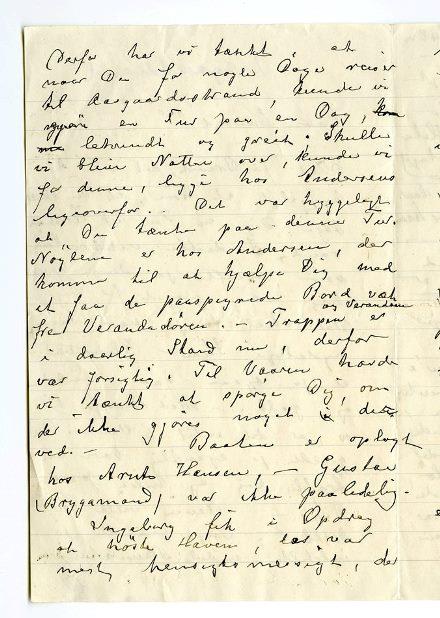 Derfor har vi tænkt at
naar Du for nogle Dage reiser
til Aasgaardsstrand, kunde vi
en Tur paa en Dag,
letvindt og greit. Skulle
vi blive Natten over, kunde vi
for denne, ligge hos Andersens
ligeoverfor. . Det var hyggeligt
at Du tænkte paa denne Tur.
Nøglene er hos Andersen, der
kommer til at hjælpe Dig med
at faa de paaspigrede Bord væk
fra Verandadøren. – Trappen er
og Verandaen
i daarlig Stand nu, derfor
vær forsigtig. Til Vaaren havde
vi tænkt at spørge Dig, om
der ikke gjøres noget
ved. – Baaten er oplagt
hos Arnt Hansen, – Gustav
(Bryggemand) var ikke paalidelig.
Ingeborg fik i Opdrag
at høste Haven, var
mest hensigtsmæssigt, da